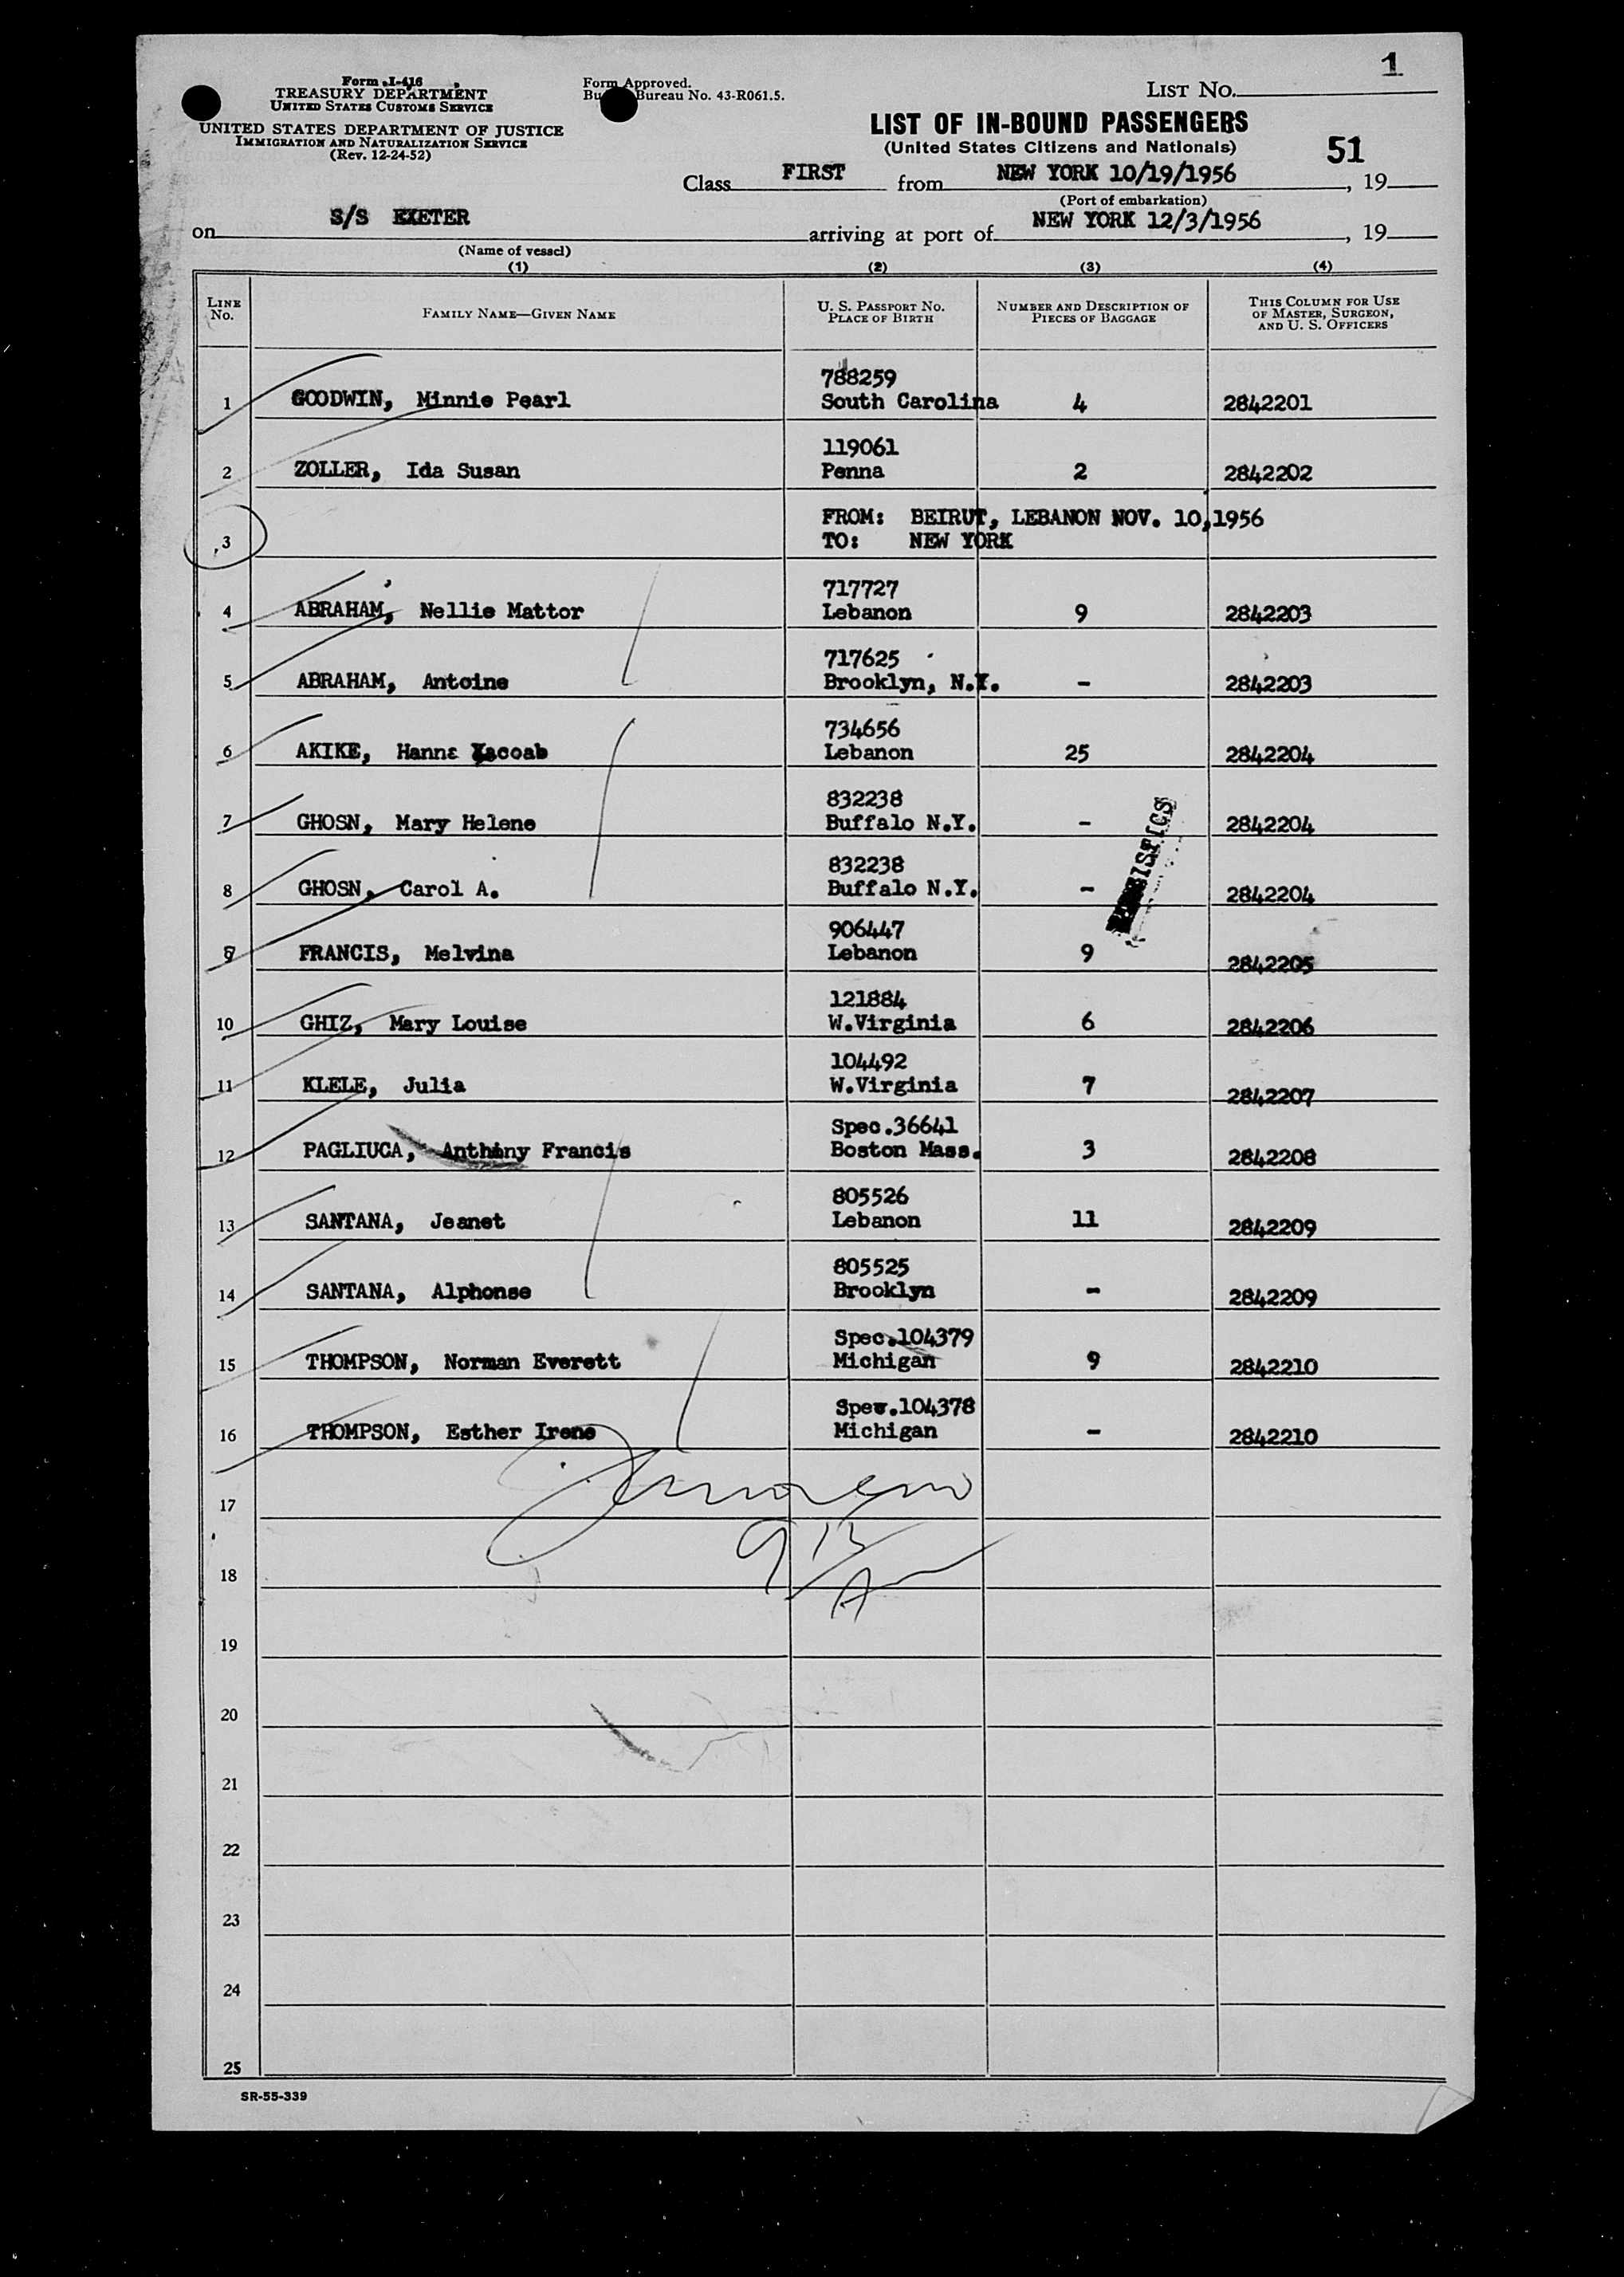 1
Form I-416
TREASURY DEPARTMENT
UNITED STATES CUSTOMS SERVICE
UNITED STATES DEPARTMENT OF JUSTICE
IMMIGRATION AND NATURALIZATION SERVICE
(Rev. 12-24-52)
Form Approved.
Bureau No. 43-R061.5.
LIST NO.
LIST OF IN-BOUND PASSENGERS
(United States Citizens and Nationals)
51
Class FIRST from NEW YORK 10/19/1956, 19
(Port of embarkation)
on S/S EXETER arriving at port of NEW YORK 12/3/1956, 19
(Name of vessel)
(1) (2) (3) (4)
LINE NO. FAMILY NAME—GIVEN NAME U. S. PASSPORT NO. PLACE OF BIRTH NUMBER AND DESCRIPTION OF PIECES OF BAGGAGE THIS COLUMN FOR USE OF MASTER, SURGEON, AND U. S. OFFICERS
788259
1 GOODWIN, Minnie Pearl South Carolina 4 2842201
119061
2 ZOLLER, Ida Susan Penna 2 2842202
FROM: BEIRUT, LEBANON NOV. 10,1956
3 TO: NEW YORK
717727
4 ABRAHAM, Nellie Mattor Lebanon 9 2842203
717625
5 ABRAHAM, Antoine Brooklyn, N.Y. - 2842203
734656
6 AKIKE, Hanna Yacoab Lebanon 25 2842204
832238
7 GHOSN, Mary Helene Buffalo N.Y. - 2842204
832238
8 GHOSN, Carol A. Buffalo N.Y. - 2842204
906447
9 FRANCIS, Melvina Lebanon 9 2842205
121884
10 GHIZ, Mary Louise W.Virginia 6 2842206
104492
11 KLELE, Julia W.Virginia 7 2842207
Spec.36641
12 PAGLIUCA, Anthony Francis Boston Mass. 3 2842208
805526
13 SANTANA, Jeanet Lebanon 11 2842209
805525
14 SANTANA, Alphonse Brooklyn - 2842209
Spec.104379
15 THOMPSON, Norman Everett Michigan 9 2842210
Spew.104378
16 THOMPSON, Esther Irene Michigan - 2842210
17
18
19
20
21
22
23
24
25
SR-55-339